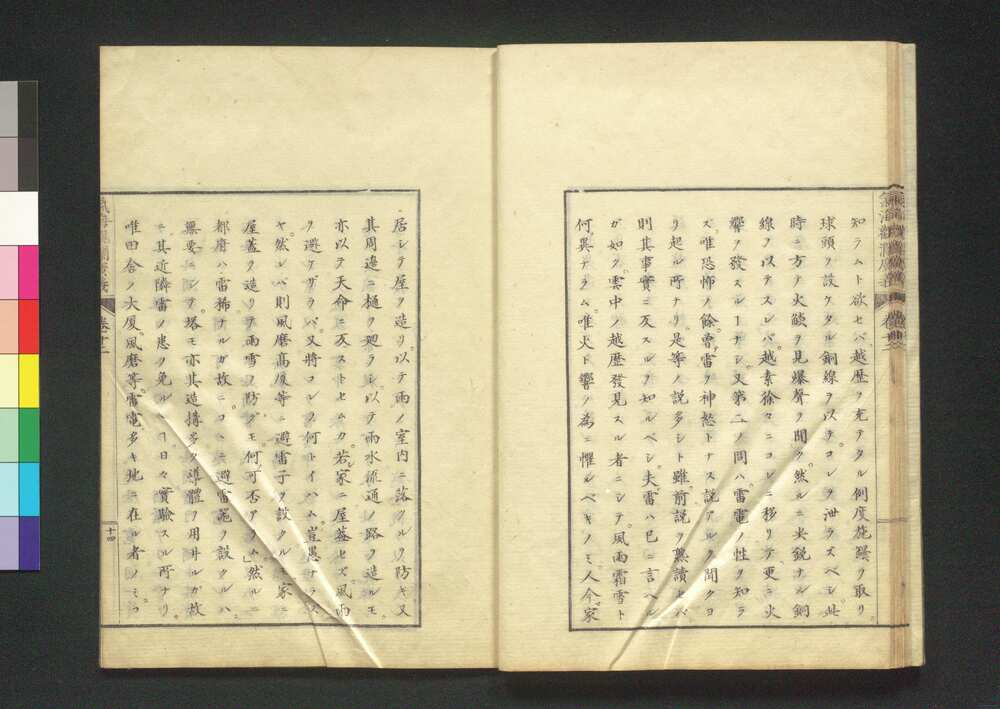 知ラムト欲セバ越歴ヲ充テタル何度施繹ヲ取リ
球頭ヲ設ケタル銅線ヲ以テコレヲ泄ラスベシ此
時ニ方テ火燄ヲ見爆聲ヲ聞ク。然ルニ尖鋭ナル銅
線ヲ以テスレバ越素徐々ニコレニ移リテ更ニ火
響ヲ發スルヿナシ。又第二ノ問ハ雷電ノ性ヲ知ラ
ズ唯恐怖ノ餘曽雷ヲ神怒トナス説アルヲ聞クヨ
リ起ル所ナリ。是等ノ説多シト雖前説ヲ熟讀セバ
則其事實ニ反スルヲ知ルベシ。夫雷ハ已ニ言ヘル
ガ如ク雲中ノ越歴發見スル者ニシテ風雨霜雪ト
何異ナラム。唯火ト響ノ為ニ懼ルベキノミ。人今家
居シテ屋ヲ造リ以テ雨ノ室内ニ落クルヲ防キ又
其周邉ニ樋ヲ廻ラシ以テ雨水流通ノ路ヲ造ルモ
亦以テ天命ニ反ストセムカ。若家ニ屋蓋セズ風雨
ヲ避ケザラバ又將コレヲ何トイハム。豈愚ナラズ
ヤ。然レバ則風磨高厦等ニ避雷子ヲ設クル家ニ
屋蓋ヲ造リテ雨雪ヲ防グモ何可否アラム」然ルニ
都府ハ雷稀ナルガ故ニコヽニ避雷苑ヲ設クルハ
無要ニシテ塔モ亦其造搆多ク導體ヲ用井ルガ故
ニ其近隣雷ノ患ヲ免ルヽヿ日々實驗スル所ナリ
唯田舎ノ大厦風磨等雷電多キ地ニ在ル者ノミコ
十四